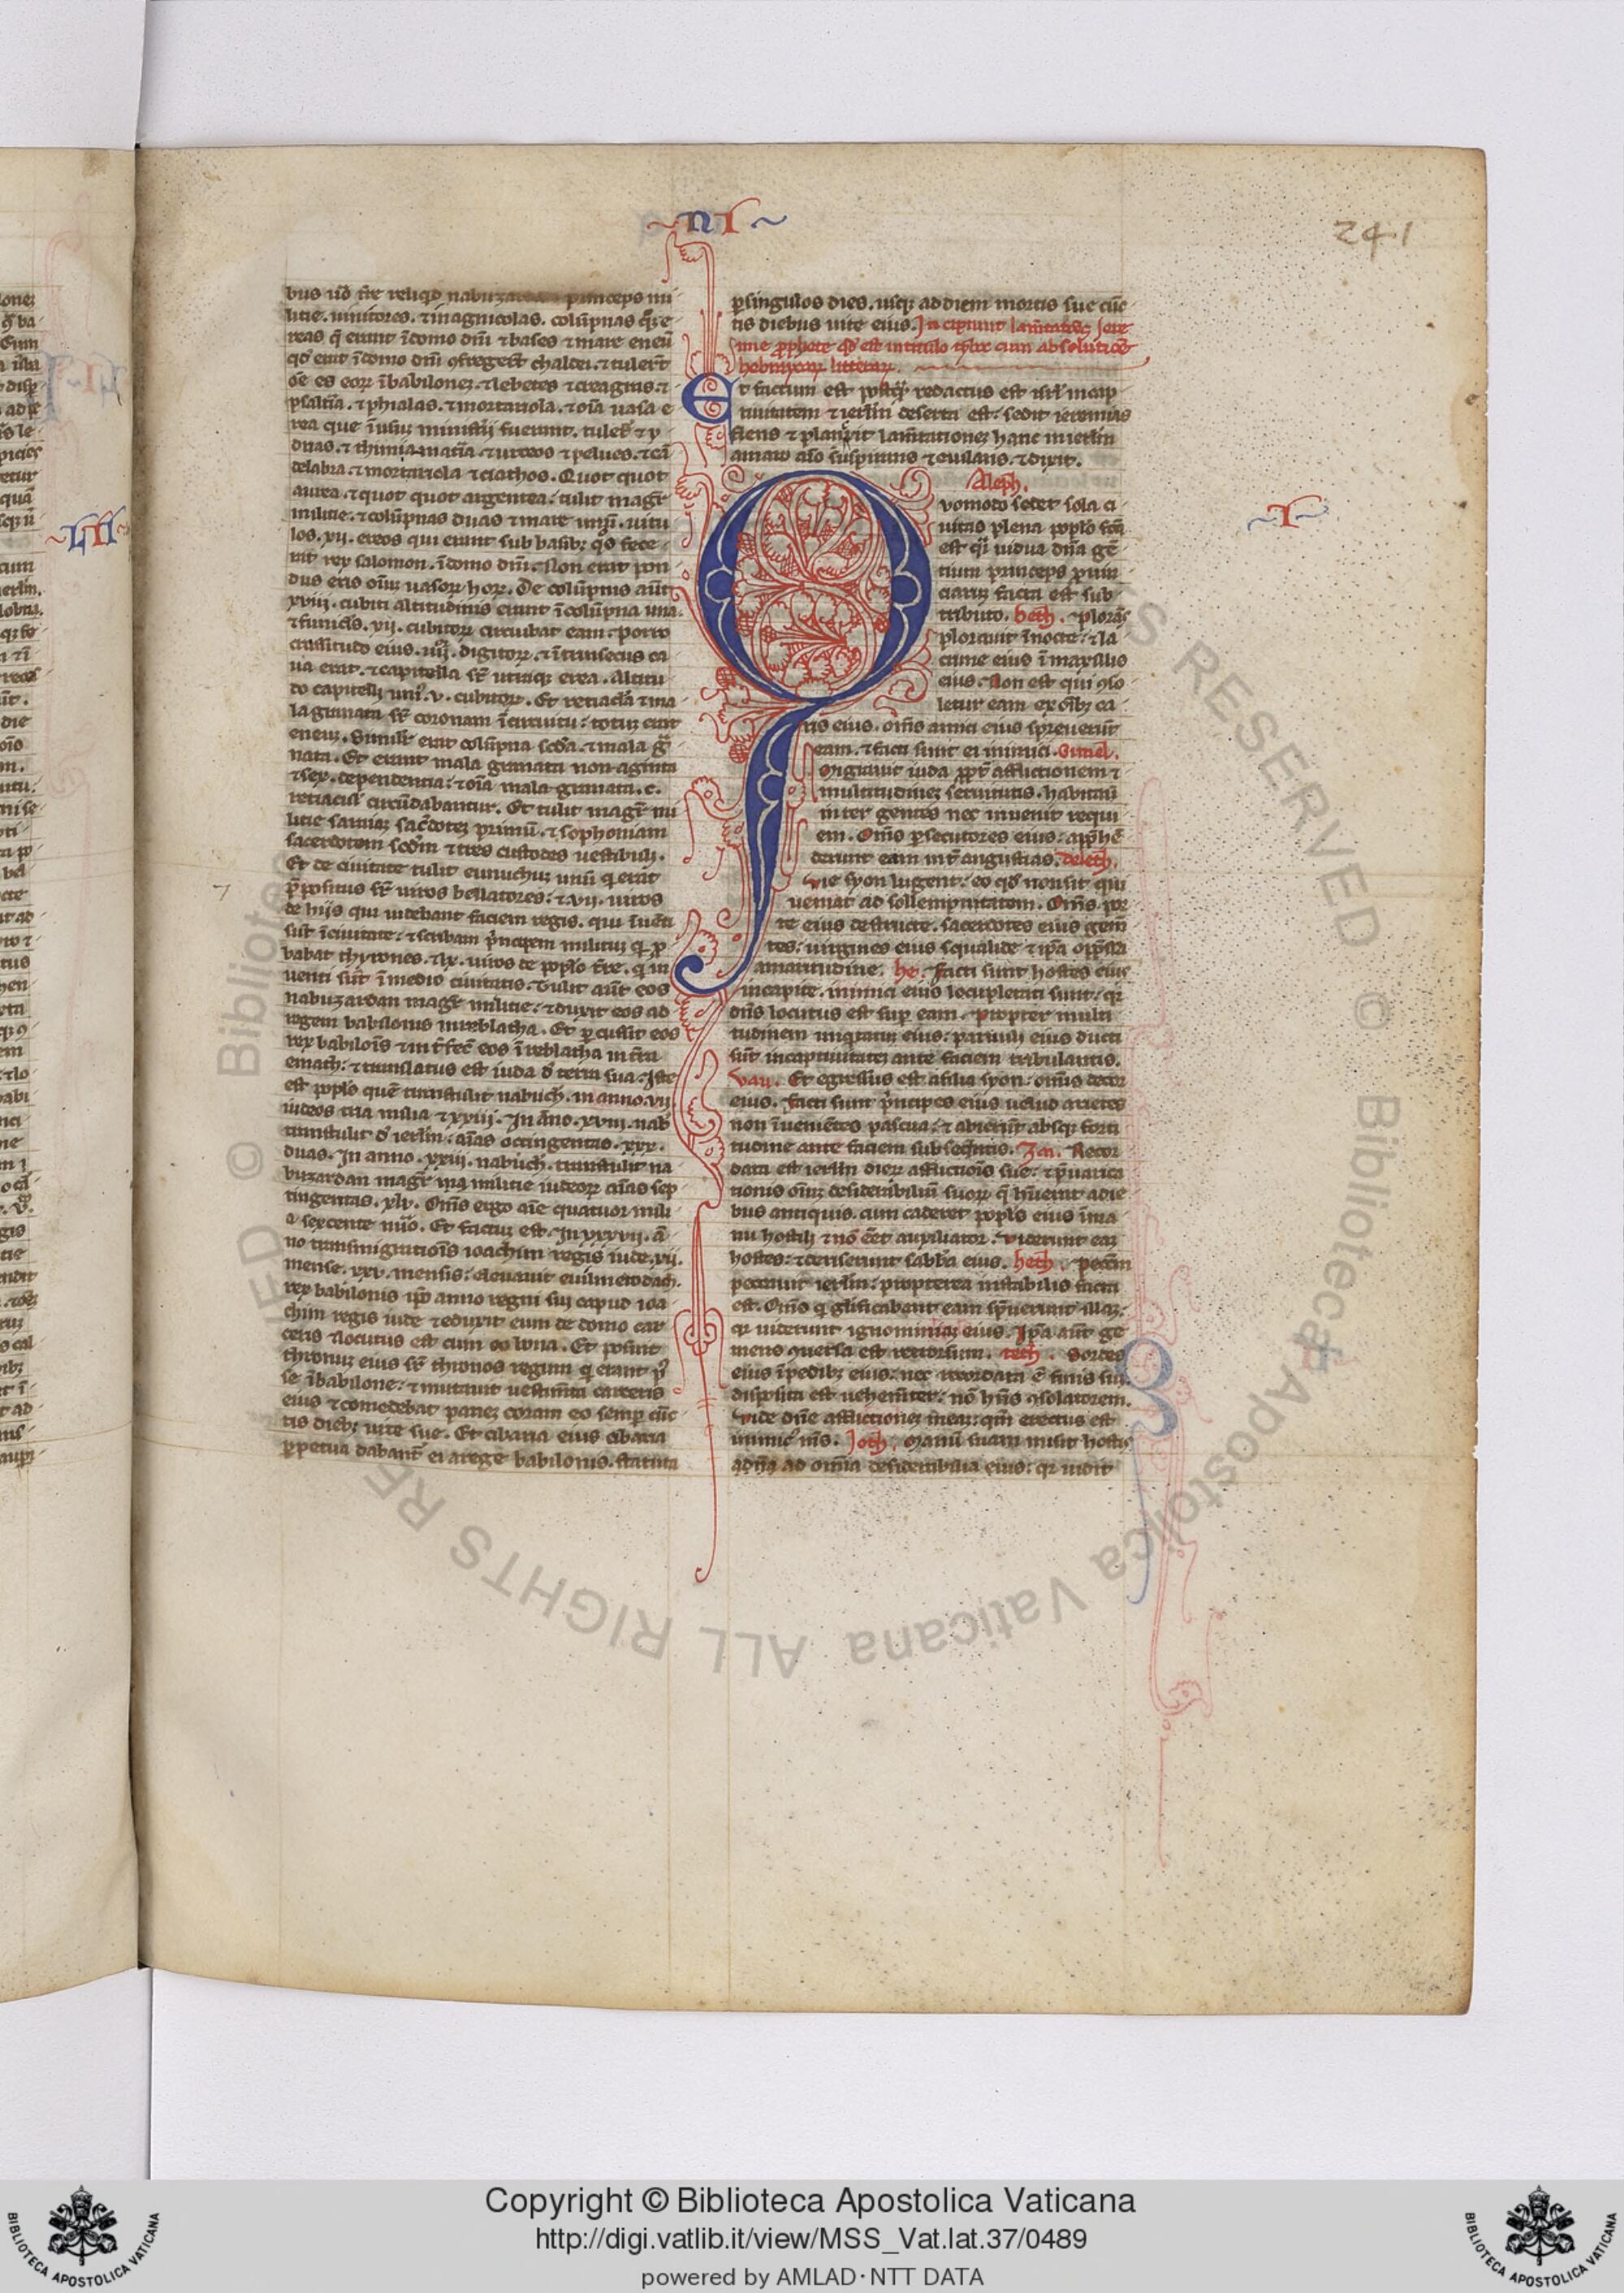 nı
241
bus uo t̄re reliqd nabuzardan princeps mi
litie. uinitores. ⁊ magricolas. colūpnas q̄z e
reas q̄ erant ī domo dn̄i ⁊ bases ⁊ mare eneū
qd erat ī domo dn̄i ꝯfregert̄ chaldei. ⁊ tulert̄
oē es eoꝝ ī babilonez. ⁊ lebetes ⁊ creagras. ⁊
psaltia. ⁊ phialas. ⁊ mortariola. ⁊ oīa uasa e
rea que ī usuz ministij fuerant. tulert̄ ⁊ y
drias. ⁊ thimiamatia. ⁊ urceos ⁊ pelues. ⁊ cā
delabra. ⁊ mortariola ⁊ ciathos. Quot quot
aurea. ⁊ quot quot argentea. tulit magr̄
militie. ⁊ colūpnas duas ⁊ mare unū. ⁊ uitu
los. xii. ereos qui erant sub basibꝫ q̄s fece
rat rex salomon. ī domo dn̄i. Non erat pon
dus eris oīuz uasoꝝ hoꝝ. De colūpnis aūt
xviij. cubiti altitudinis erant ī colūpna una.
⁊ funiculꝰ. xij. cubitoꝝ circuibat eam. Porro
crassitudo eius. iiijor. digitoꝝ. ⁊ ītrinsecus ca
ua erat. ⁊ capitella sr̄ utrāqz erea. Altitu
do capitelli uniꝰ. v. cubitoꝝ. Et retiacla ⁊ ma
la granata sr̄ coronam ī circuitu. totuz erat
eneuz. Similr̄ erat colūpna scd̄a. ⁊ mala g̃
nata. Et erant mala granata nonaginta
⁊ sex. dependentia. ⁊ oīa mala granata. c.
retiaculis circūdabantur. Et tulit magr̄ mi
litie saraiaz sac̄dotez primū. ⁊ sophoniam
sacerdotem scd̄m ⁊ tres custodes uestibuli.
Et de ciuitate tulit eunuchuz unū q̄ erat
p̄positus sr̄ uiros bellatores. ⁊ vii. uiros
de hijs qui uidebant faciem regis. qui īuēti
sūt ī ciuitate. ⁊ scribam p̄ncipem militū q̄ p̄
babat thyrones. ⁊ lx. uiros de pplo t̄re. q̄ in
uenti sūt ī medio ciuitatis. Tulit aūt eos
nabuzardan magr̄ militie. ⁊ duxit eos ad
regem babilonis in reblatha. Et p̄cussit eos
rex babiloīs ⁊ int̄fec̄ eos ī reblatha in t̄ra
emath. ⁊ translatus est iuda d̄ terra sua. Iste
est pplꝰ quē transtulit nabuch̄. in anno. vij
iudeos tria milia ⁊ xxiij. In āno. xviii. nab̄
transtulit d̄ ierlm̄. aīas octingentas. xxx.
duas. In anno. xxiij. nabuch̄. transtulit na
buzardan magr̄ militie iudeoꝝ aīas sep
tingentas. xlv. Om̄s ergo aīe quatuor mili
a sexcente. Et factuz est. In xxxvij. ā
no transmigratiōis ioachim regis iude. xij.
mense. xxv. mensis. eleuauit euilmerodach.
rex babilonis ip̄o anno regni sui capud ioa
chim regis iude ⁊ eduxit eum de domo car
ceris ⁊ locutus est cum eo bona. Et posuit
thronuz eius sr̄ thronos regum q̄ erant p̄
se ī babilone. ⁊ mutauit uestim̄ta carceris
eius ⁊ comedebat panez coram eo semp̄ cūc
tis diebꝫ uite sue. Et cibaria eius cibaria
p̄petua dabant̄ ei a rege babilonis. statuta
ꝑ singulos dies. usqꝫ ad diem mortis sue cūc
tis diebus uite eius. Incipiunt lam̄tatōes Iere
mie pphete qd̄ est in titulo thre cum absolutiōe
hebraycaꝝ litteraꝝ.
Et factum est postq̄ꝫ redactus est isrl̄ in cap
tiuitatem ⁊ ierlm̄ deserta est. sedit ieremias
flens ⁊ planxit lam̄tationez hanc in ierlm̄
amaro aīo suspirans ⁊ eiulans. ⁊ dixit.
Aleph.
Quomodo sedet sola ci
uitas plena pplo fcā
est q̄i uidua dn̄a gē
tium princeps ꝓuin
ciaruz facta est sub
tributo. beth. Plorās
plorauit ī nocte. ⁊ la
crime eius ī maxillis
eius. Non est qui ꝯso
letur eam ex oībꝫ ca
ris eius. om̄s amici eius spreuerūt
eam. ⁊ facti sunt ei inimici. Gimel.
Migrauit iuda ppt̄ afflictionem ⁊
multitudinez seruitutis. habitauit
inter gentes nec inuenit requi
em. Om̄s ꝑsecutores eius. app̄hē
derunt eam int̄ angustias. Deleth.
Vie syon lugent. eo qd̄ non sit qui
ueniat ad sollempnitatem. Om̄s por
te eius destructe. sacerdotes eius gem̄
tes. uirgines eius squalide ⁊ ip̄a opp̄ssa
amaritudine. he. Facti sunt hostes eius
in capite. inimici eius locupletati sunt. qr̄
dn̄s locutus est suꝑ eam. Propter multi
tudinem iniqtatuz eius. paruuli eius ducti
sūt in captiuitatez ante faciem tribulantis.
Vau. Et egressus est a filia syon. omīs decor
eius. Facti sunt p̄ncipes eius uelud arietes
non īuenientes pascua. ⁊ abierūt absqꝫ forti
tudine ante faciem subseq̄ntis. Zai. Recor
data est ierlm̄ dieꝝ afflictiōis sue. ⁊ p̄uarica
tionis oīuz desiderabiliuz suoꝝ q̄ hūerat a die
bus antiquis. cum caderet pplūs eius ī ma
nu hostili ⁊ nō eēt auxiliator. Viderunt eaz
hostes. ⁊ deriserunt sabb̄a eius. heth. Peccm̄
peccauit ierlm̄. propterea instabilis facta
est. Om̄s q̄ glīficabant eam sp̄uerunt illaz.
qr̄ uiderunt ignominiaz eius. Ip̄a aūt ge
mens ꝯuersa est retrorsum. teth. Sordes
eius ī pedibꝫ eius. nec recordata ē finis sui.
disposita est uehem̄ter. nō hn̄s ꝯsolatorem.
Vide dn̄e afflictionez meaz. qm̄ erectus est
inimicꝰ m̄s. Joth. Manū suam misit hostis
ad omīa desiderabilia eius. qr̄ uidit
I
LII
Copyright © Biblioteca Apostolica Vaticana
http://digi.vatlib.it/view/MSS_Vat.lat.37/0489
powered by AMLAD·NTT DATA
BIBLIOTECA APOSTOLICA VATICANA
BIBLIOTECA APOSTOLICA VATICANA
© Biblioteca Apostolica Vaticana ALL RIGHTS RESERVED